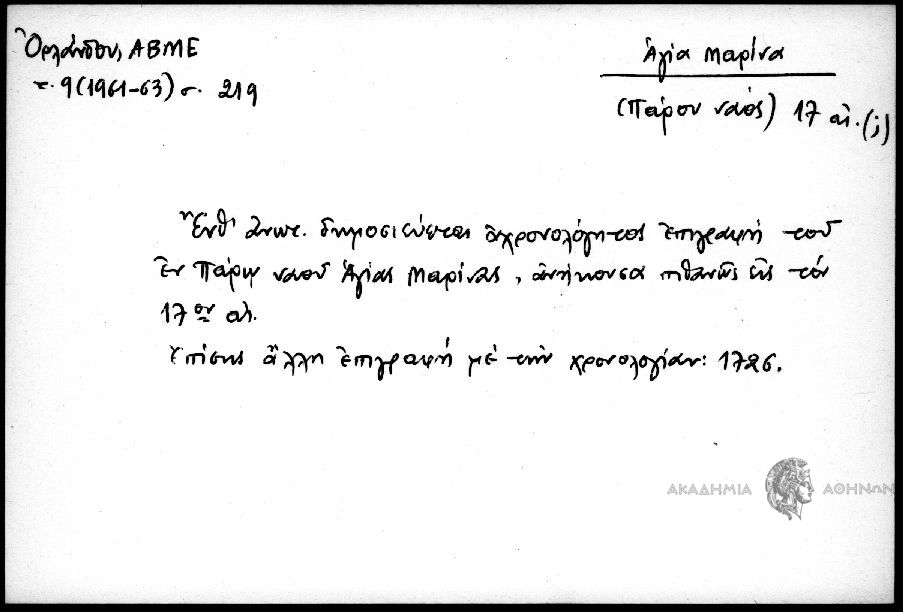 Ὀρλάνδου, ΑΒΜΕ
τ. 9 (1961-63) σ. 219
Ἁγία Μαρίνα
(Πάρου ναός) 17 αἰ. (;)
Ἔνθ' ἀνωτ. δημοσιεύεται ἀχρονολόγητος ἐπιγραφή τοῦ
ἐν Πάρῳ ναοῦ Ἁγίας Μαρίνας, ἀνήκουσα πιθανῶς εἰς τόν
17ον αἰ.
Ἐπίσης ἄλλη ἐπιγραφή μέ τήν χρονολογίαν: 1726.
ΑΚΑΔΗΜΙΑ ΑΘΗΝΩΝ